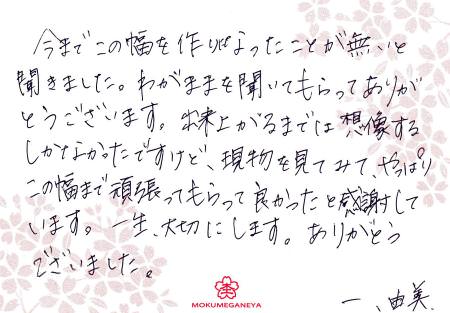 今までこの幅を作りばなったことが無いと
聞きました。わがままを聞いてもらってありが
とうございます。出来上がるまでは想像する
しかなかったですけど、現物を見てみて、やっぱり
この幅まで頑張ってもらって良かったと感謝して
います。一生、大切にします。ありがとう
ございました。
MOKUMEGANEYA
一、由美